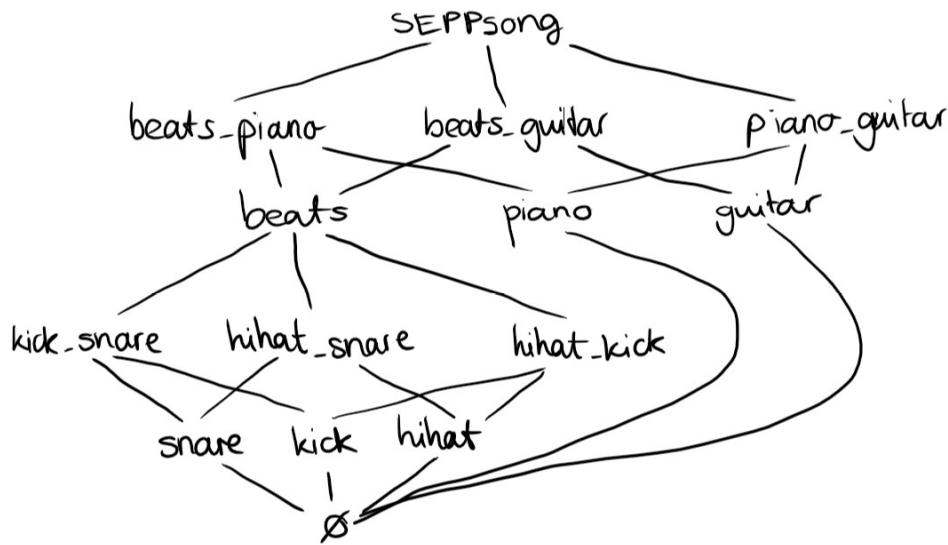 SEPPsong
beats_piano beats_guitar piano_guitar
beats piano guitar
kick_snare hihat_snare hihat_kick
snare kick hihat
∅